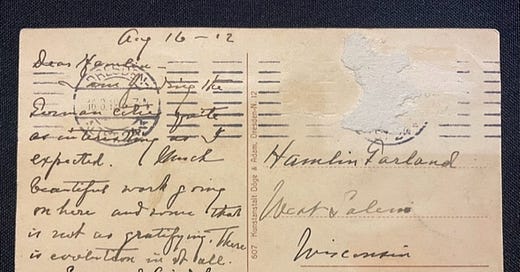 Aug 16-12
Dear Hamlin-
I am finding the
German cities quite
as interesting as I
expected. Much
beautiful work going
on here and some that
is not as gratifying. There
is evolution in it all.
607 Kunstanstalt Döge & Adam, Dresden-N. 12
Hamlin Garland
West Salem
Wisconsin